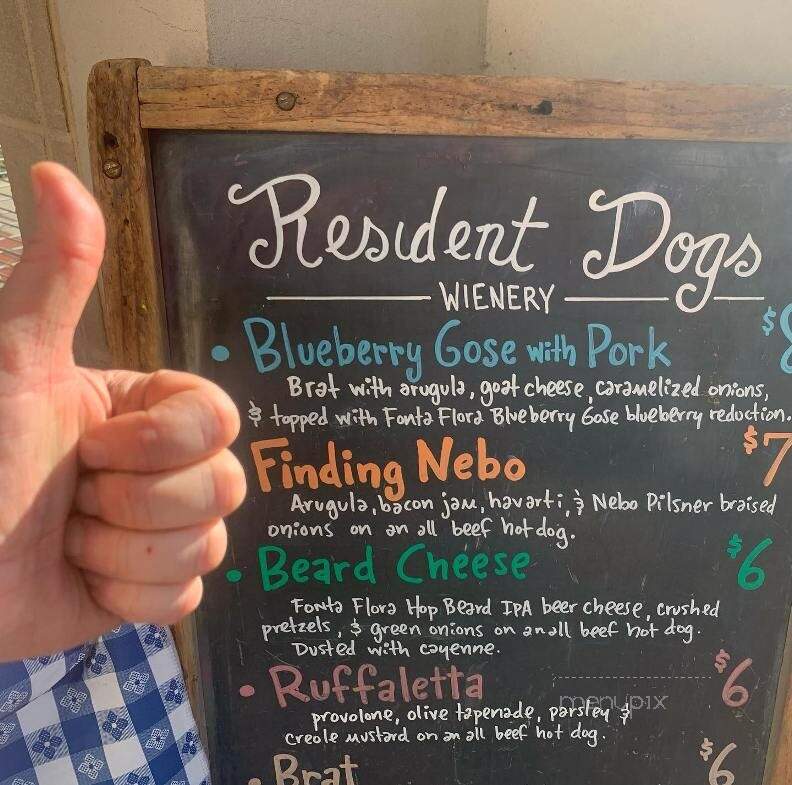 Resident Dogs
WIENERY
• Blueberry Gose with Pork $8
Brat with arugula, goat cheese, caramelized onions,
& topped with Fonta Flora Blueberry Gose blueberry reduction.
Finding Nebo $7
Arugula, bacon jam, havarti, & Nebo Pilsner braised
onions on an all beef hot dog.
• Beard Cheese $6
Fonta Flora Hop Beard IPA beer cheese, crushed
pretzels, & green onions on an all beef hot dog.
Dusted with cayenne.
• Ruffaletta $6
menupix
provolone, olive tapenade, parsley &
creole mustard on an all beef hot dog.
• Brat $6